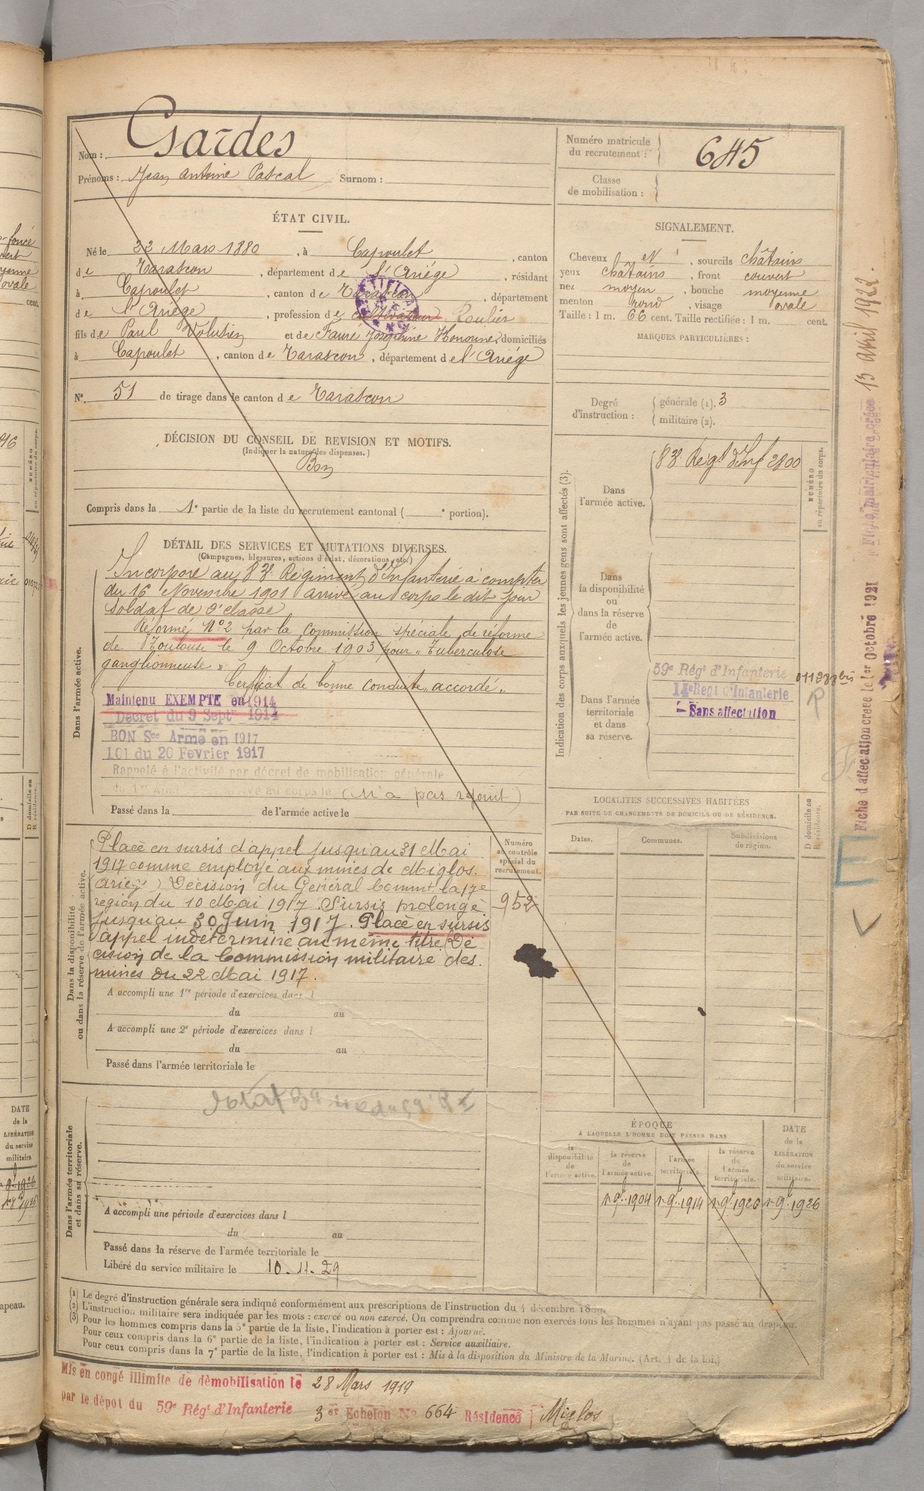 Nom : Gardes
Prénoms : Jean Antoine Pascal Surnom :
Numéro matricule
du recrutement : 645
Classe
de mobilisation :
ÉTAT CIVIL.
Né le 22 Mars 1880, à Capoulet, canton
de Tarascon, département de l'Ariège, résidant
à Capoulet, canton de Tarascon, département
de l'Ariège, profession de
fils de Paul Volusien et de Faure Joséphine Honorine, domiciliés
à Capoulet, canton de Tarascon, département de l'Ariège
N° 51 de tirage dans le canton de Tarascon
SIGNALEMENT.
Cheveux N, sourcils châtains
yeux châtains, front couvert
nez moyen, bouche moyenne
menton rond, visage ovale
Taille : 1 m. 66 cent. Taille rectifiée : 1 m. cent.
MARQUES PARTICULIÈRES :
Degré
d'instruction :
générale (1). 3
militaire (2).
DÉCISION DU CONSEIL DE REVISION ET MOTIFS.
(Indiquer la nature des dispenses.)
Bon
Compris dans la 1e partie de la liste du recrutement cantonal ( e portion).
DÉTAIL DES SERVICES ET MUTATIONS DIVERSES.
(Campagnes, blessures, actions d'éclat, décorations, etc.)
Dans l'armée active.
Incorporé au 83e Régiment d'Infanterie à compter
du 16 Novembre 1901 arrivé au corps le dit jour
soldat de 2e classe
Réformé N°2 par la commission spéciale de réforme
de Toulouse le 9 Octobre 1903 pour "Tuberculose
ganglionneuse"
Certificat de bonne conduite "accordé".
Maintenu EXEMPTE en 1914
Décret du 9 Septre 1914
BON Sce Armé en 1917
Loi du 20 Février 1917
Rappelé à l'activité par décret de mobilisation générale
au corps le (n'a pas rejoint)
Passé dans la de l'armée active le
Indication des corps auxquels les jeunes gens sont affectés (3).
NUMÉRO
au répertoire du corps.
Dans
l'armée active.
83e Régt d'Inf 2800
Dans
la disponibilité
ou
dans la réserve
de
l'armée active.
Dans l'armée
territoriale
et dans
sa réserve.
59e Régt d'Infanterie
Regt d'Infanterie
Sans affectation
R
Dans la disponibilité
ou dans la réserve de l'armée active.
Placé en sursis d'appel jusqu'au 31 Mai
1917 comme employé aux mines de Miglos
(Ariège) Décision du Général Commt la 17e
région du 10 Mai 1917 Sursis prolongé
jusqu'au 30 Juin 1917. Placé en sursis
d'appel indéterminé au même titre. Dé
cision de la Commission militaire des
mines du 22 Mai 1917.
Numéro
au contrôle
spécial du
recrutement.
952
A accompli une 1re période d'exercices dans l
du au
A accompli une 2e période d'exercices dans l
du au
Passé dans l'armée territoriale le
LOCALITÉS SUCCESSIVES HABITÉES
PAR SUITE DE CHANGEMENTS DE DOMICILE OU DE RÉSIDENCE.
Dates.
Communes.
Subdivisions
de région.
D domicile ou
R résidence.
Dans l'armée territoriale
et dans sa réserve.
A accompli une période d'exercices dans l
du au
Passé dans la réserve de l'armée territoriale le
Libéré du service militaire le 10.11.29
ÉPOQUE
À LAQUELLE L'HOMME DOIT PASSER DANS
la
disponibilité
de
l'armée active.
la réserve
de
l'armée active.
l'armée
territoriale.
la réserve
de
l'armée
territoriale.
DATE
de la
LIBÉRATION
du service
militaire.
1er 9bre 1904 1er 9bre 1914 1er 9bre 1920 1er 9bre 1926
(1) Le degré d'instruction générale sera indiqué conformément aux prescriptions de l'instruction du 4 décembre
(2) L'instruction militaire sera indiquée par les mots : exercé ou non exercé. On comprendra comme non exercés tous les hommes n'ayant pas passé au drapeau.
(3) Pour les hommes compris dans la 5e partie de la liste, l'indication à porter est : Ajourné.
Pour ceux compris dans la 6e partie de la liste, l'indication à porter est : Service auxiliaire.
Pour ceux compris dans la 7e partie de la liste, l'indication à porter est : Mis à la disposition du Ministre de la Marine. (Art. 4 de la loi.)
Mis en congé illimité de démobilisation le 28 Mars 1919
par le dépôt du 59e Régt d'Infanterie 3e Echelon N° 664 Résidence Miglos
Fiche d'affectation créée le 1er Octobre 1921
Fiche matriculaire créée 13 Avril 1922.
E